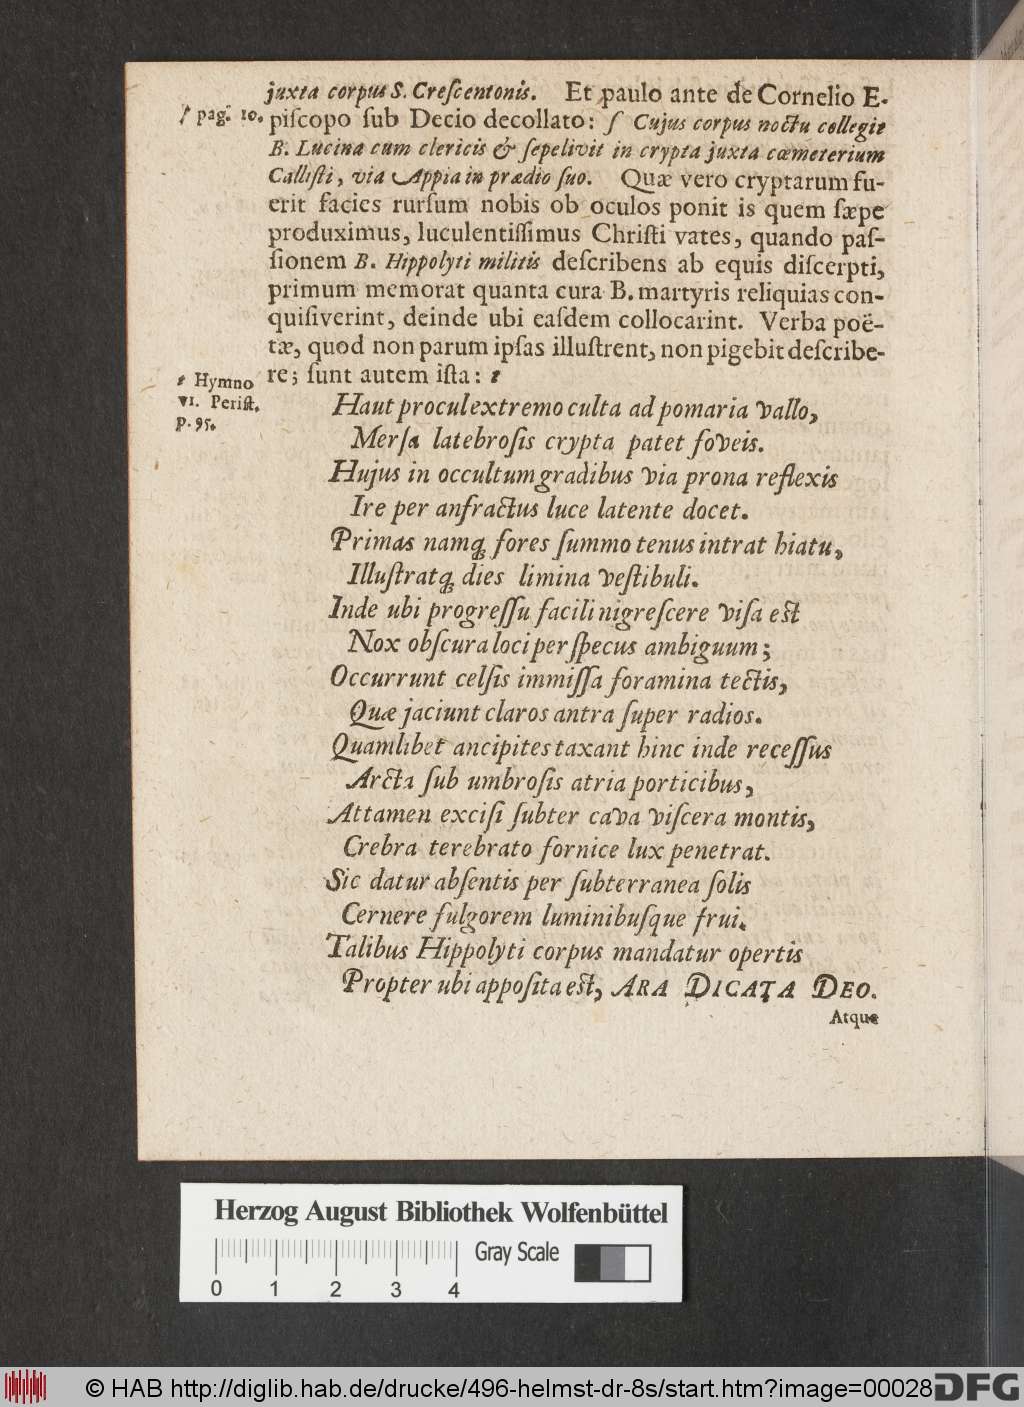 juxta corpus S. Creſcentonis. Et paulo ante de Cornelio E-
ſ pag. 10.
piſcopo ſub Decio decollato: ſ Cujus corpus noctu collegit
B. Lucina cum clericis & ſepelivit in crypta juxta cœmeterium
Calliſti, via Appia in prædio ſuo. Quæ vero cryptarum fu-
erit facies rurſum nobis ob oculos ponit is quem ſæpe
produximus, luculentiſſimus Chriſti vates, quando paſ-
ſionem B. Hippolyti militis deſcribens ab equis diſcerpti,
primum memorat quanta cura B. martyris reliquias con-
quiſiverint, deinde ubi eaſdem collocarint. Verba poë-
tæ, quod non parum ipſas illuſtrent, non pigebit deſcribe-
re; ſunt autem iſta: t
t Hymno
VI. Periſt.
p. 95.
Haut procul extremo culta ad pomaria vallo,
Merſa latebroſis crypta patet foveis.
Hujus in occultum gradibus via prona reflexis
Ire per anfractus luce latente docet.
Primas namq; fores ſummo tenus intrat hiatu,
Illuſtratq; dies limina veſtibuli.
Inde ubi progreſſu facili nigreſcere viſa eſt
Nox obſcura loci per ſpecus ambiguum;
Occurrunt celſis immiſſa foramina tectis,
Quæ jaciunt claros antra ſuper radios.
Quamlibet ancipites taxant hinc inde receſſus
Arcta ſub umbroſis atria porticibus,
Attamen exciſi ſubter cava viſcera montis,
Crebra terebrato fornice lux penetrat.
Sic datur abſentis per ſubterranea ſolis
Cernere fulgorem luminibuſque frui.
Talibus Hippolyti corpus mandatur opertis
Propter ubi appoſita eſt, ARA DICATA DEO.
Atque
Herzog August Bibliothek Wolfenbüttel
Gray Scale
0 1 2 3 4
© HAB http://diglib.hab.de/drucke/496-helmst-dr-8s/start.htm?image=00028
DFG